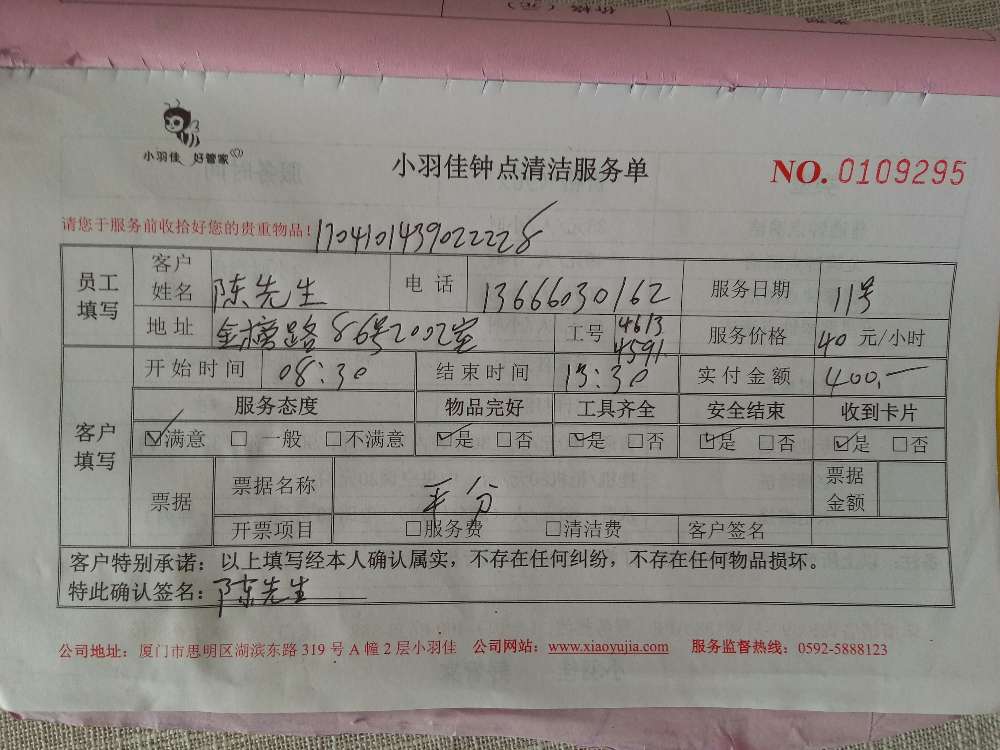 小羽佳 好管家
小羽佳钟点清洁服务单
NO. 0109295
请您于服务前收拾好您的贵重物品!
员工填写 客户姓名 陈先生 电话 13666030162 服务日期 11号
地址 金榜路86号2002室 工号 4613 4591 服务价格 40 元/小时
客户填写 开始时间 08:30 结束时间 13:30 实付金额 400.—
服务态度 物品完好 工具齐全 安全结束 收到卡片
☑满意 □ 一般 □不满意 ☑是 □否 ☑是 □否 ☑是 □否 ☑是 □否
票据 票据名称 平分 票据金额
开票项目 □服务费 □清洁费 客户签名
客户特别承诺：以上填写经本人确认属实，不存在任何纠纷，不存在任何物品损坏。
特此确认签名：陈先生
公司地址：厦门市思明区湖滨东路 319 号 A 幢 2 层小羽佳 公司网站：www.xiaoyujia.com 服务监督热线：0592-5888123